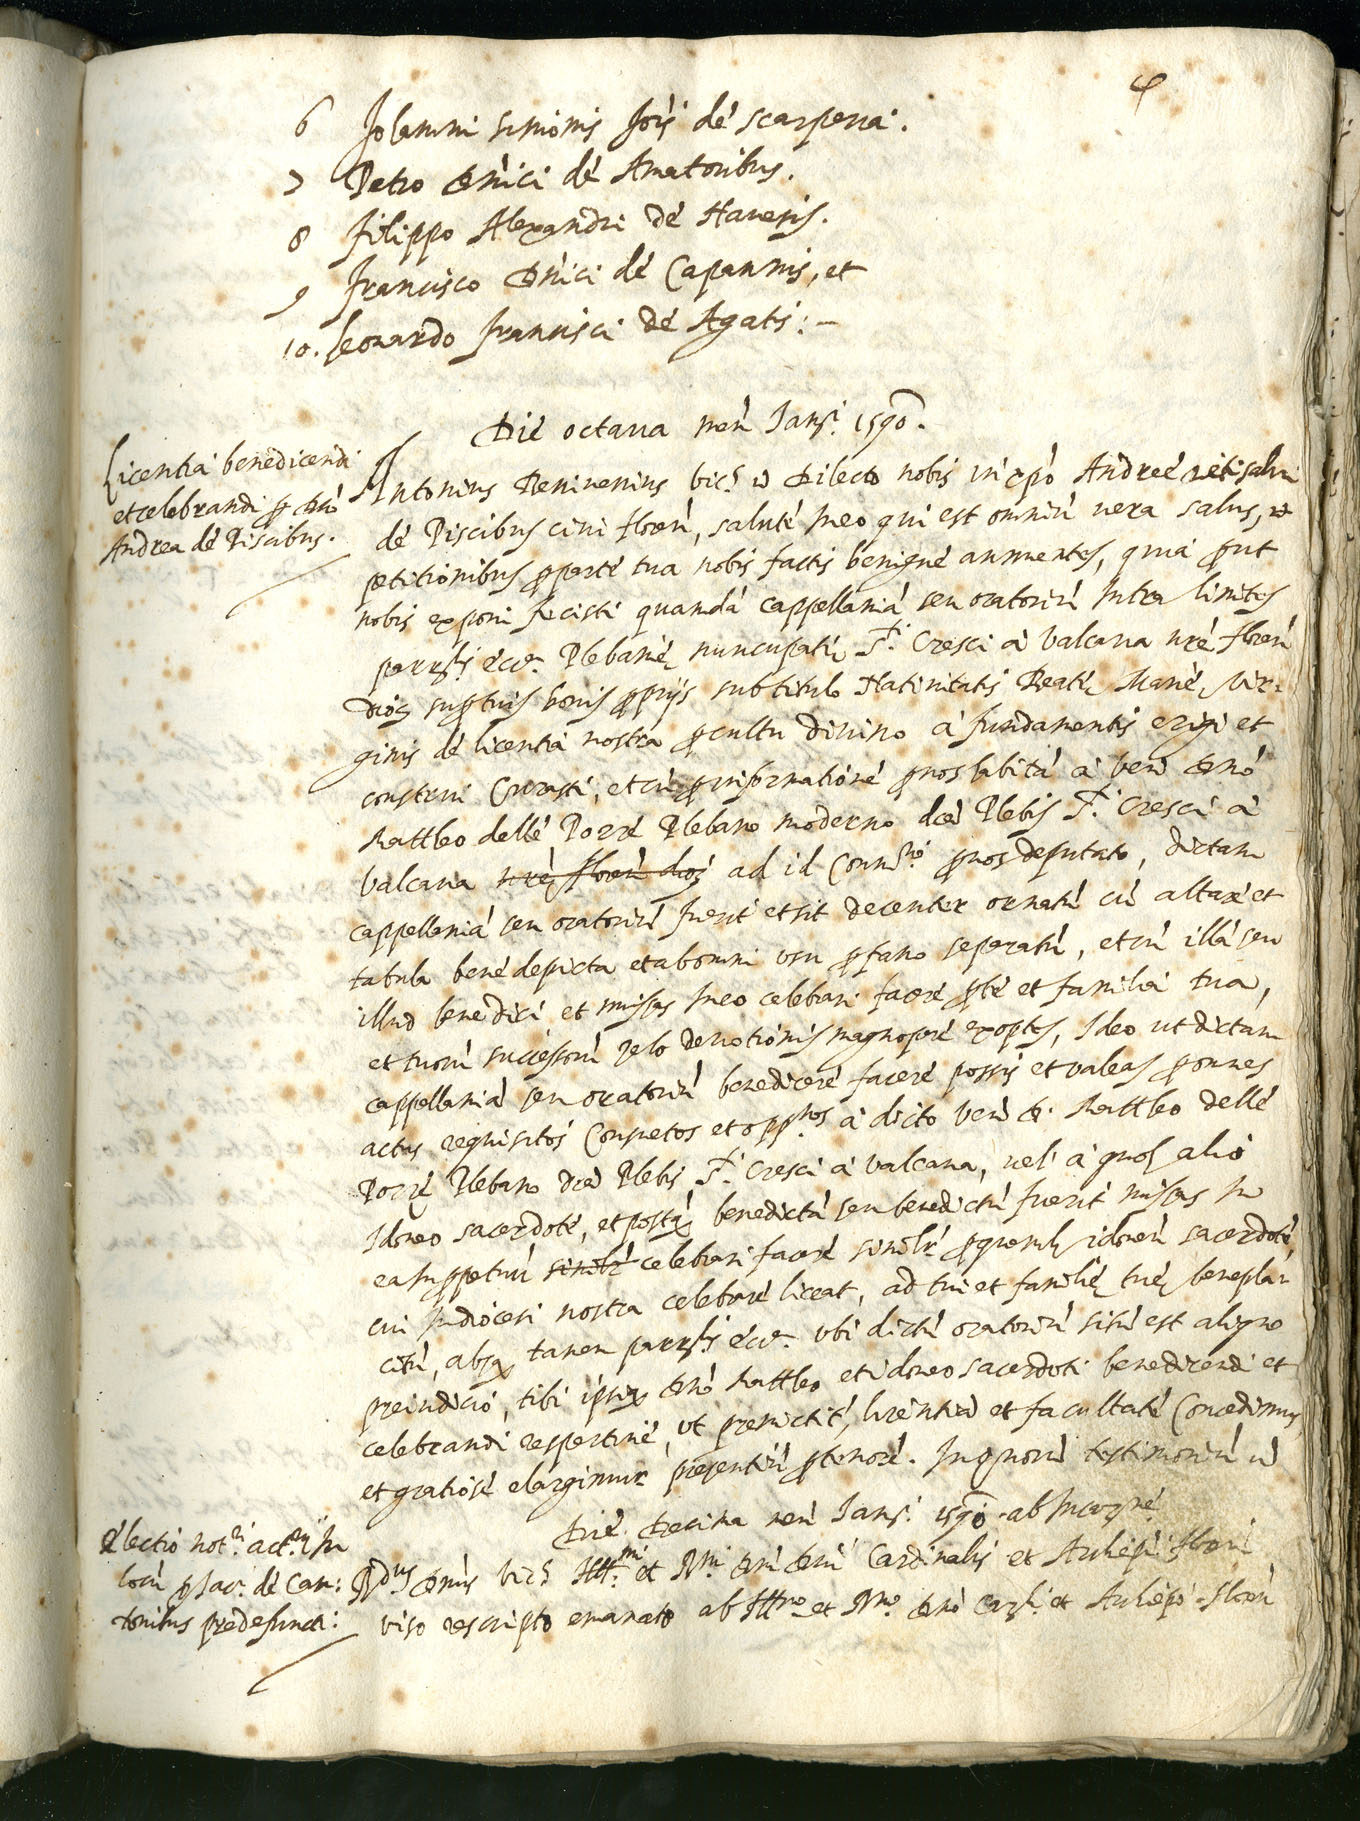 4
6 Johanni simonis Jois de scarperia.
7 Petro Dnici de Amatoribus.
8 filippo Alexandri de Stanesis.
9 francisco Dnici de Capannis, et
10. leonardo francisci de Agatis: -
Die octava men Janj. 1590.
Licentia benedicendi
et celebrandi p Dno
Andrea de Piscibus.
Antonius Benivenius vic.s et Dilecto nobis in xpo Andree
de Piscibus civi floren, salute in eo qui est omniu vera salus, et
petitionibus p parte tua nobis factis benigne annuentes, quia put
nobis exponi fecisti quanda cappellania seu oratoriu Intra limites
parrlis ecce. Plebanie nuncupate S.ti Cresci a Valcava nre floren
dioc sup tuis bonis ppriis sub titulo Nativitatis Beate Marie Vir-
ginis de licentia nostra p cultu divino a fundamentis erigi et
construi Curasti, et cu p informatione p nos habita a ven Dno
Mattheo delle Porre Plebano moderno dce Plebis S.ti Cresci a
Valcava nre floren dioc ad id Comm.rio p nos deputato, dictam
cappellania seu oratoriu fuerit et sit decenter ornatu cu altare et
tabula bene depicta et ab omni usu pfano separatu, et cu illa seu
illud benedici et missas in eo celebrari facere p te et familia tua,
et tuoru successoru zelo devotionis magnopere exoptes, Ideo ut dictam
cappellania seu oratoriu benedicere facere possis et valeas p omnes
actus requisitos Consuetos et opp.nos a dicto Ven D. Mattheo delle
Porre Plebano dce Plebis S.ti Cresci a Valcava, vel a quovis alio
Idoneo sacerdote, et postq benedicta seu benedictu fuerit missas in
ea In ppetuu similr celebrari facere similr p quemlt idoneu sacerdote,
cui In diocesi nostra celebrare liceat, ad tui et familie tue benepla-
citu, absq tamen parrlis ecce. ubi dictu oratoriu situ est aliquo
preiudicio, tibi ipsiq Dno Mattheo et idoneo sacerdoti benedicendi et
celebrandi respective, ut premictit, licentia et facultate Concedimus,
et gratiose elargimur presentiu p tenore. In quoru testimoniu et
Die Decima men Janj. 1590. ab Incarne
Electio not.ri act.ru In
locu p Jac. de Can:
tonibus predefuncti:
R.dus Dnus Vic.s Ill.mi et R.mi Dni Dni Cardinalis et Archiepi floren
viso rescripto emanato ab Ill.mo et R.mo Dno Carli et Archiepo floren